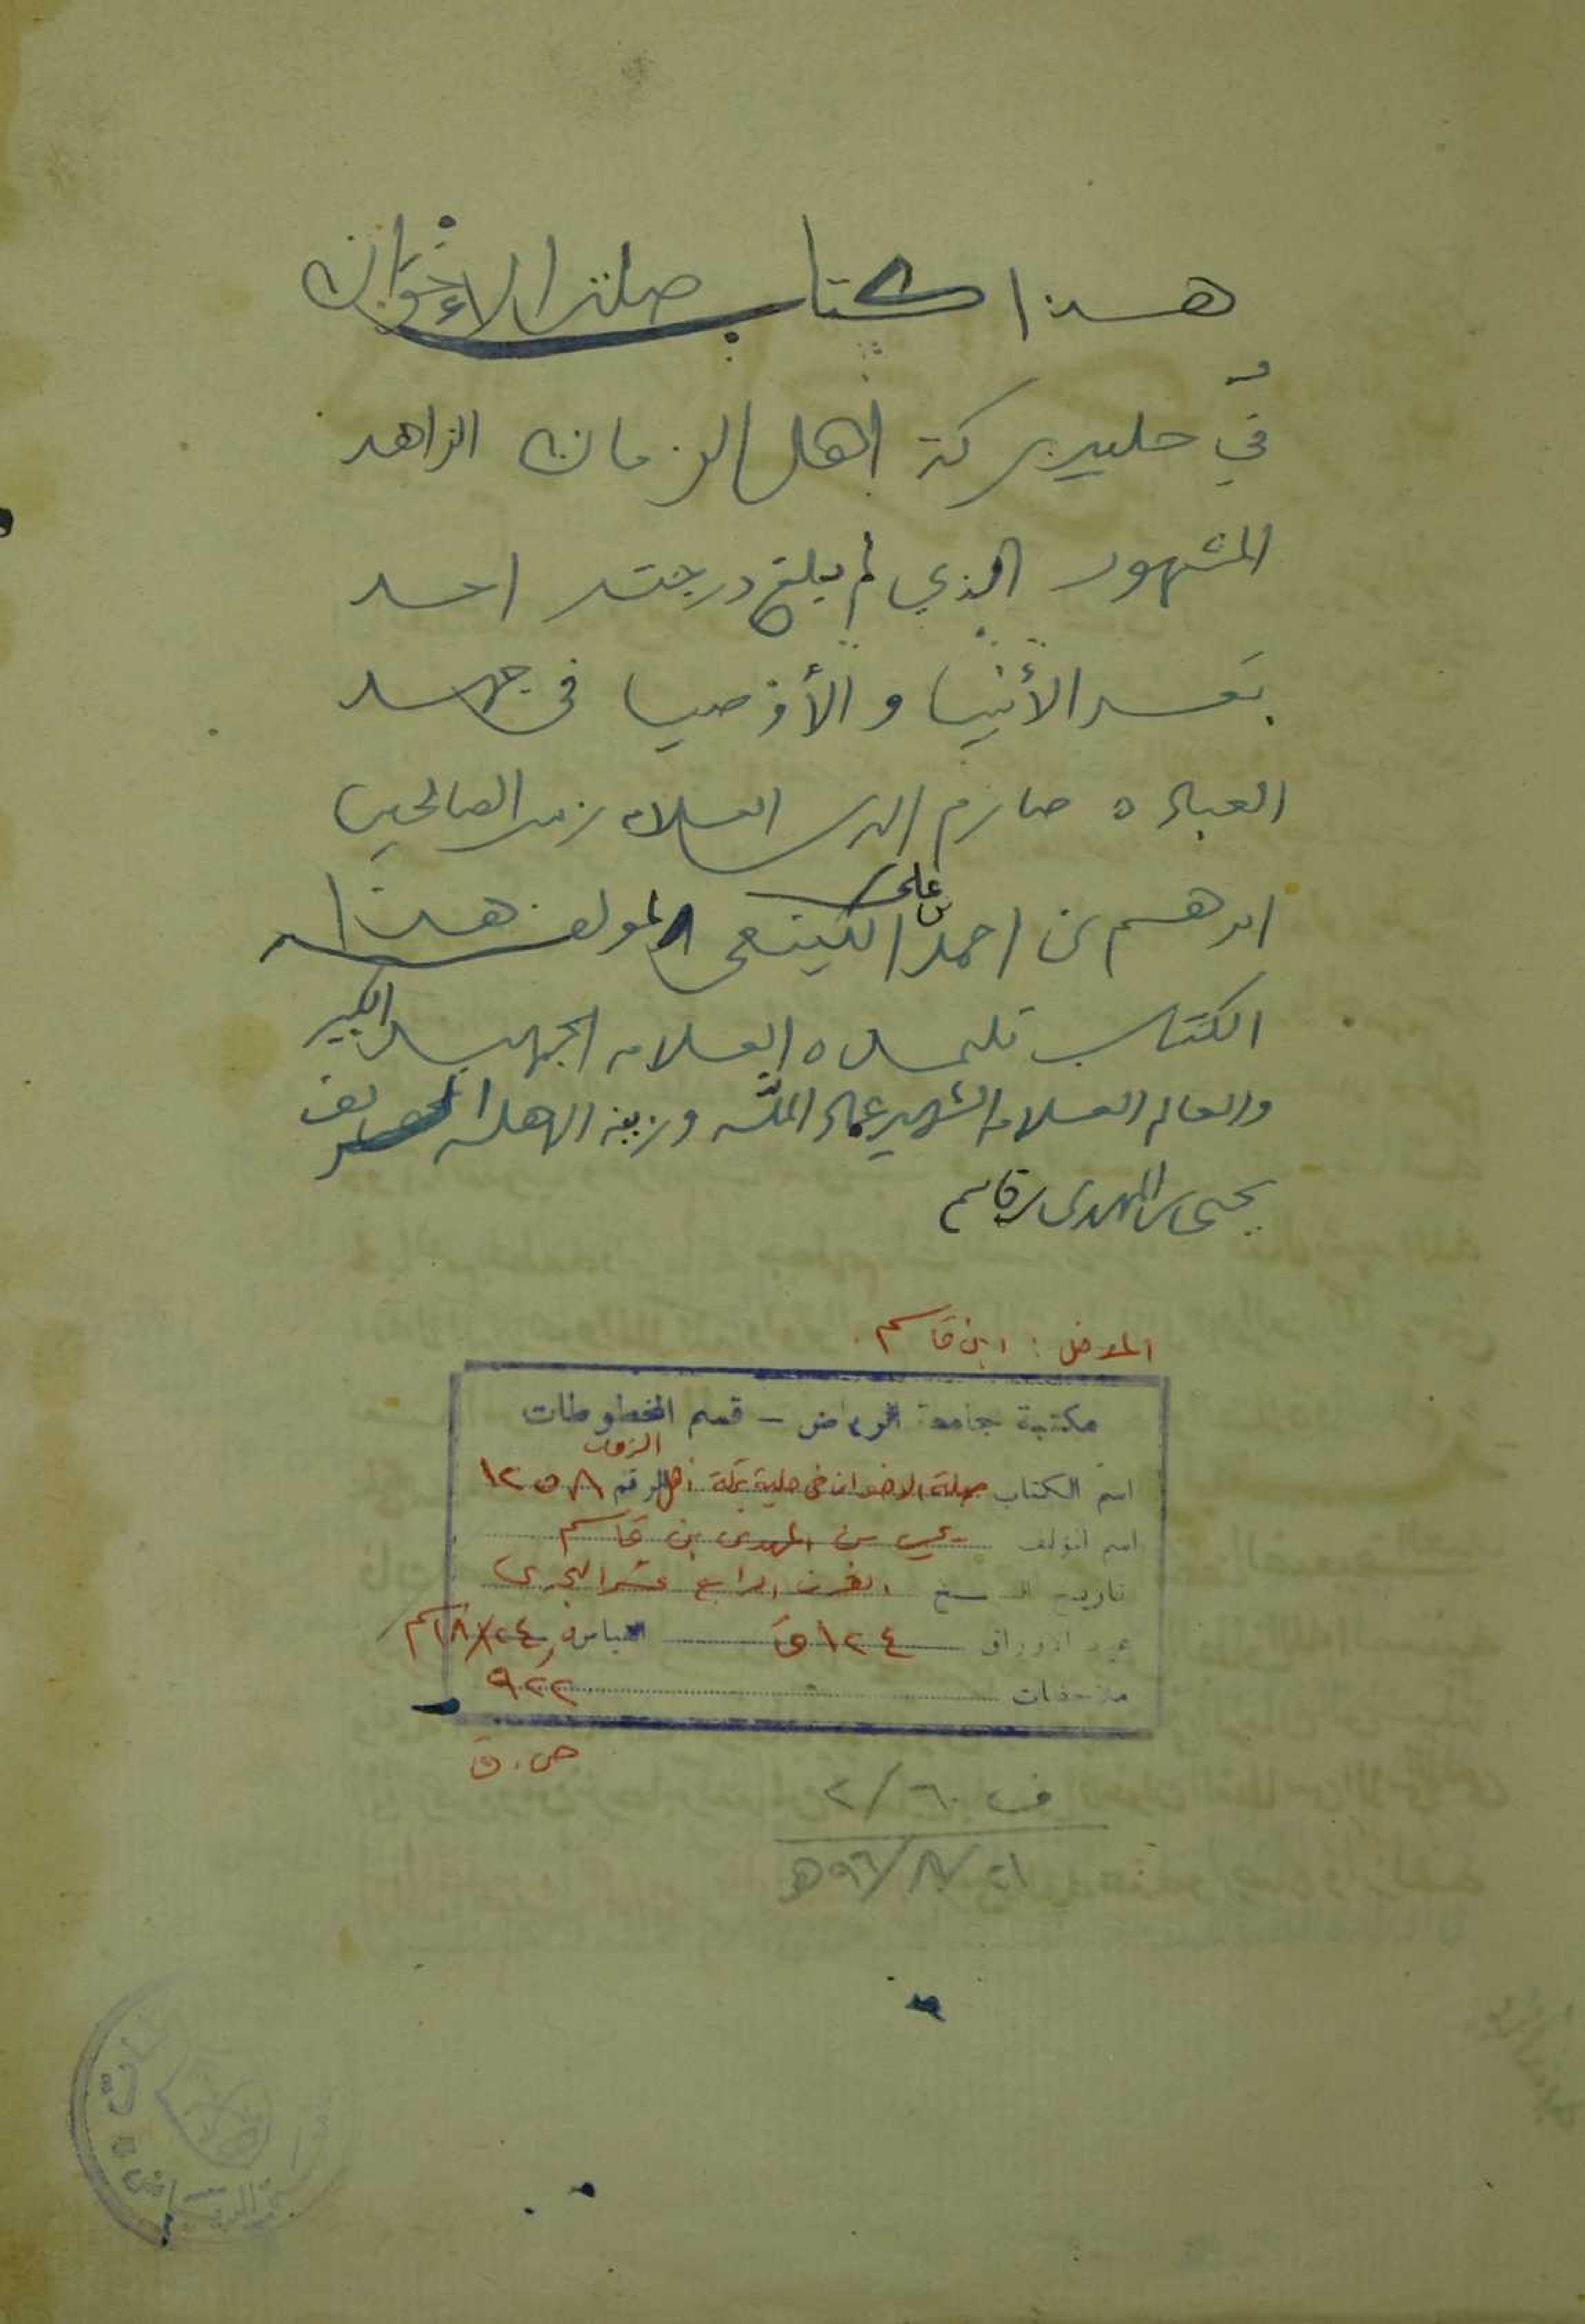 هذا كتاب صلة الإخوان
في حلية بركة أهل الزمان الزاهد
المشهور الذي لم يبلغ درجته احد
بعد الأنبيا والأوصيا في جهد
العباده صارم الدين العلامه زين الصالحين
ابرهيم بن احمد بن على الكينعي المولف هذا
الكتاب تلميذه العلامه الجهبذ الكبير
والعالم العلامه الشهير عماد المله وزينة اهل
يحيى بن المهدى بن قاسم
المدخل : ابن قاسم
مكتبة جامعة الرياض - قسم المخطوطات
اسم الكتاب صلة الاخوان في حلية بركة اهل الزمان الرقم ١٢٥٨
اسم المؤلف يحيى بن المهدى بن قاسم
تاريخ النسخ القرن الرابع عشر الهجرى
عدد الاوراق ١٢٤ ق القياس ٢٤×١٨ سم
ملاحظات ٩٢٢
ص . ق
ف ٦٠ / ٢
٩٦/٨/ هـ